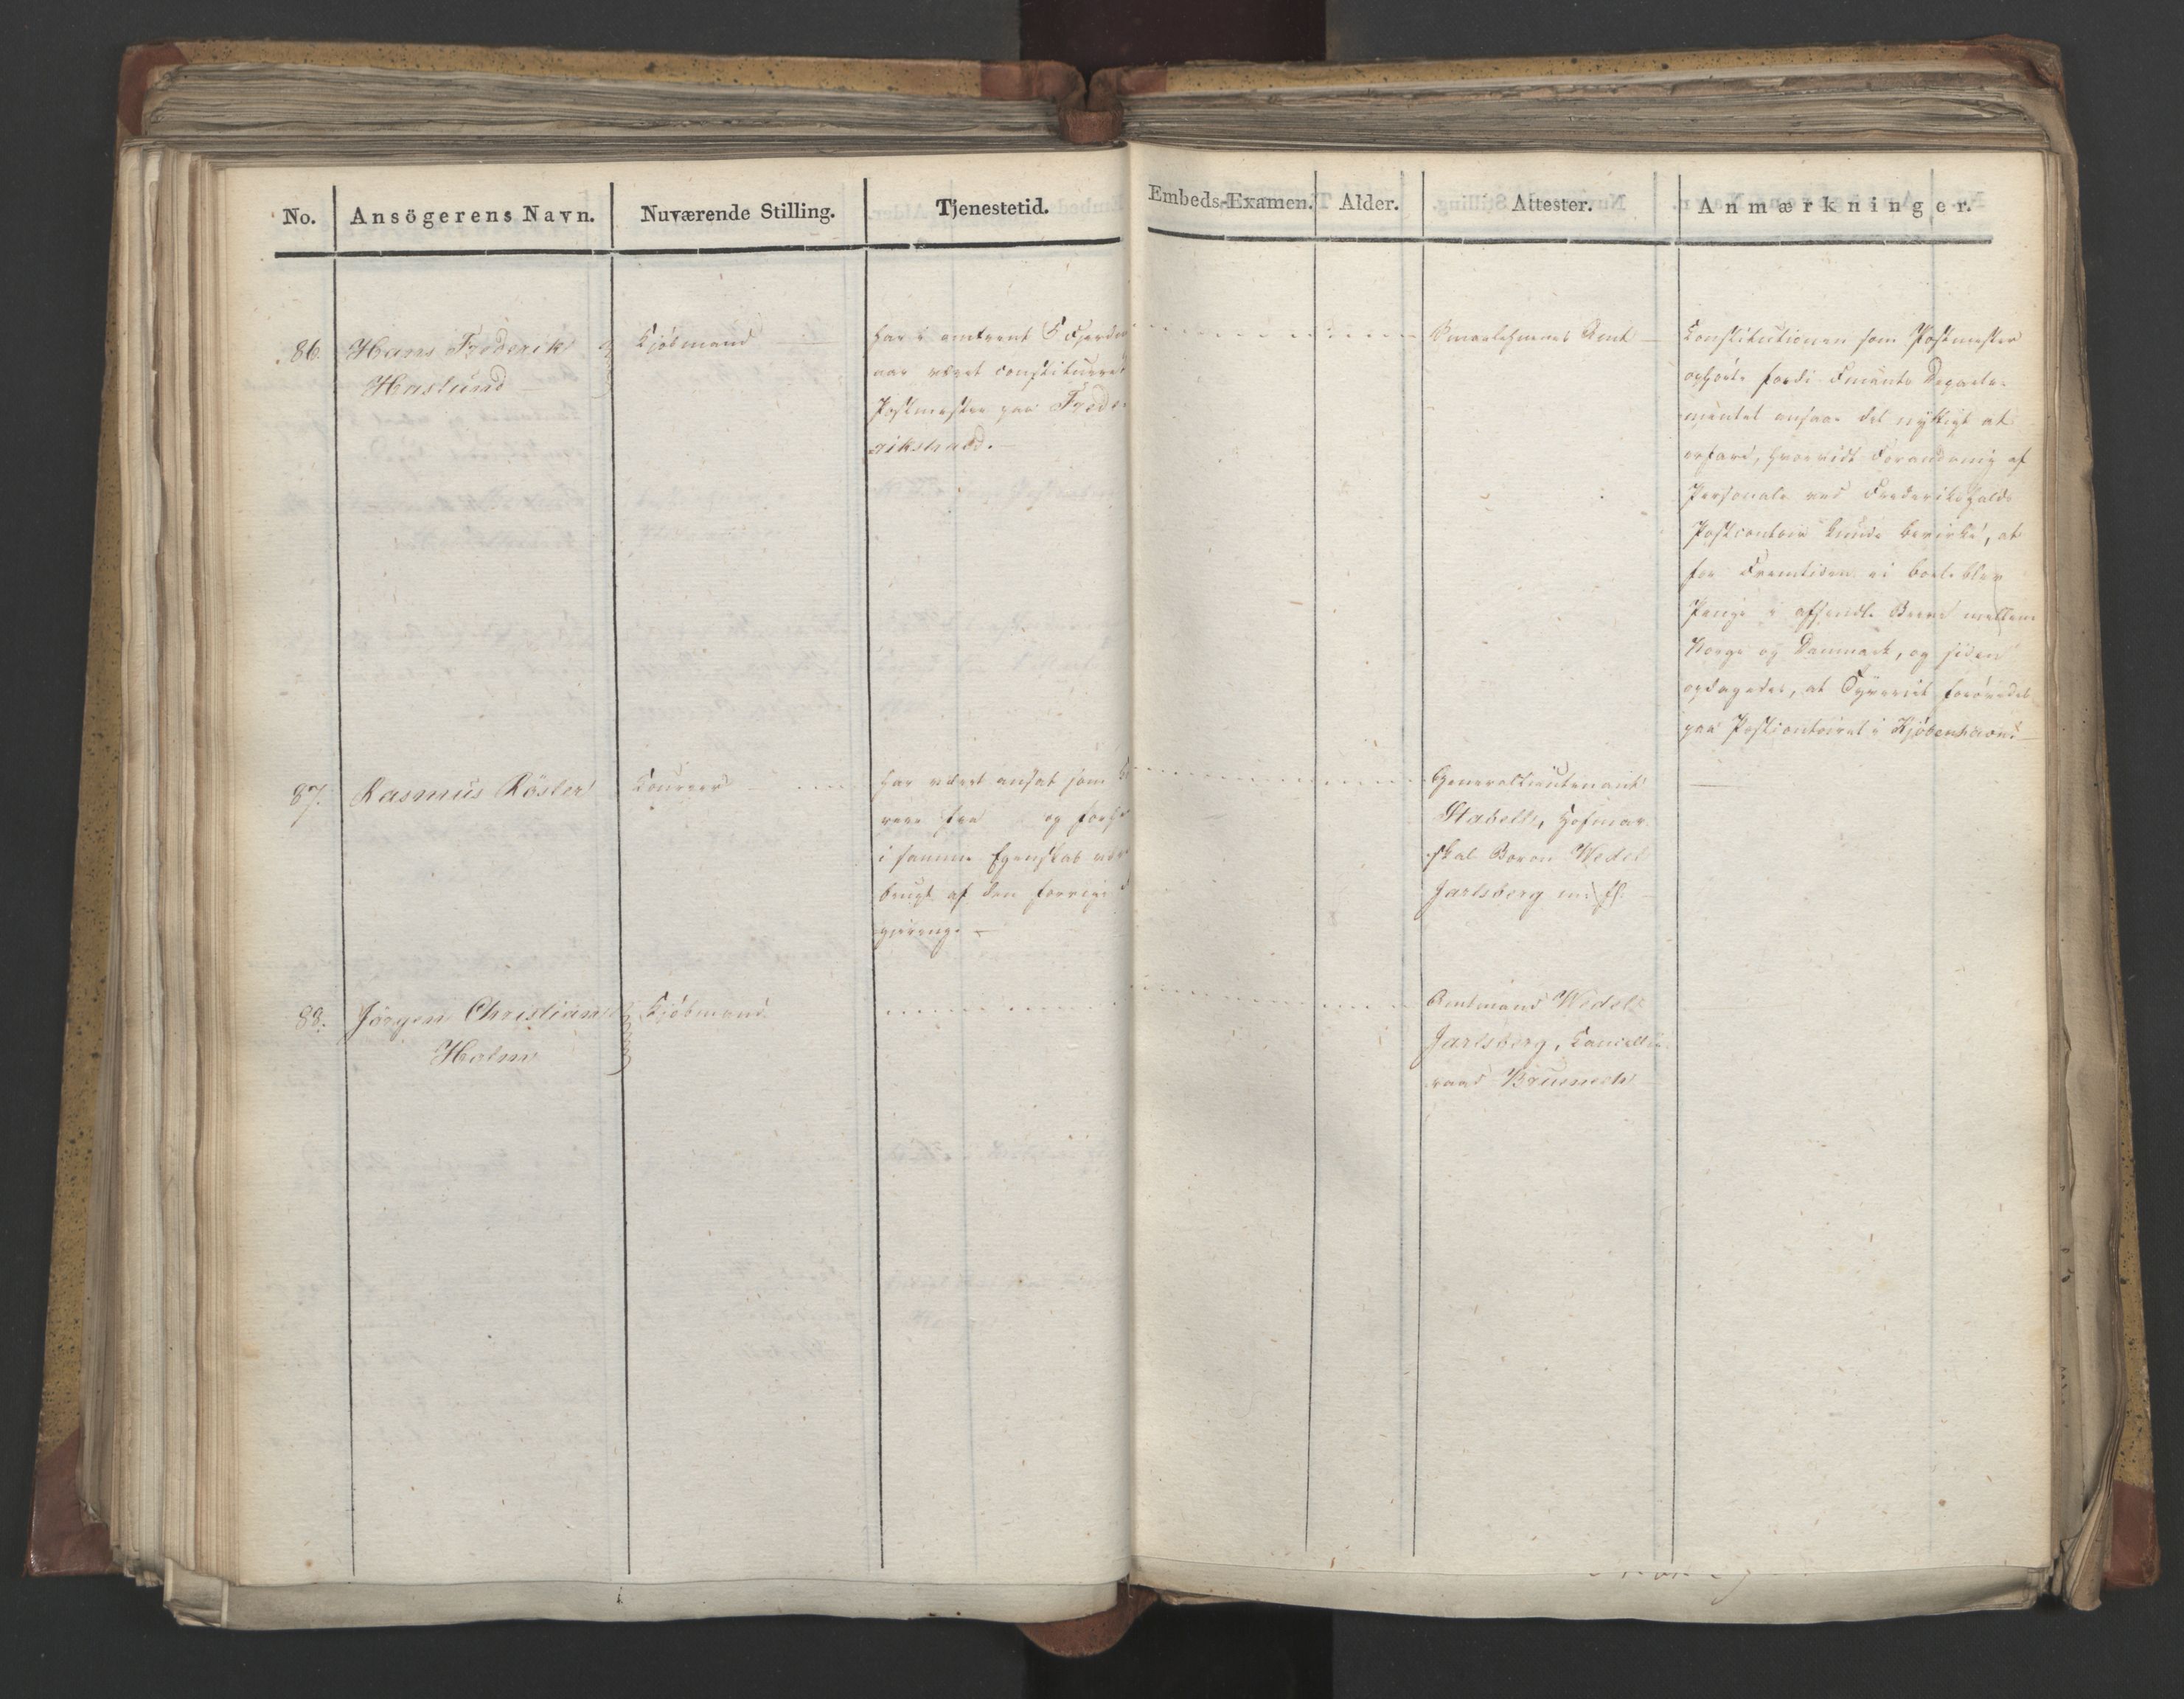 No. Ansögerens Navn. Nuværende Stilling. Tjenestetid. Embeds-Examen. Alder. Attester. Anmærkninger.
86. Hans Frederik Haslund
Kjöbmand
har i omtrent 5 Fjerdin
aar været constitueret
Postmester paa Frede-
rikshald.
Smaalehnenes Amt
Constitutionen som Postmester
ophörte fordi Finants Departe-
mentet ansaae det nyttigt at
erfare, hvorvidt Forandring af
Personale ved Frederikshalds
Postcontoir kunde bevirke, at
for Fremtiden ei bortblev
Penge i afsendte Breve mellem
Norge og Danmark, og siden
opdagedes, at Tyveriet forövedes
paa Postcontoiret i Kjöbenhavn.
87. Rasmus Röster
Coureer
har været ansat som
reer fra og forhe
i samme Egenskab vær
brugt af den forrige
gjering.
Generallieutenant
Stabell, Hofmar-
skal Baron Wedel
Jarlsberg m: fl.
88. Jörgen Christian
Holm
Kjöbmand
Amtmand Wedel
Jarlsberg, Cancellie
raad Bruenech